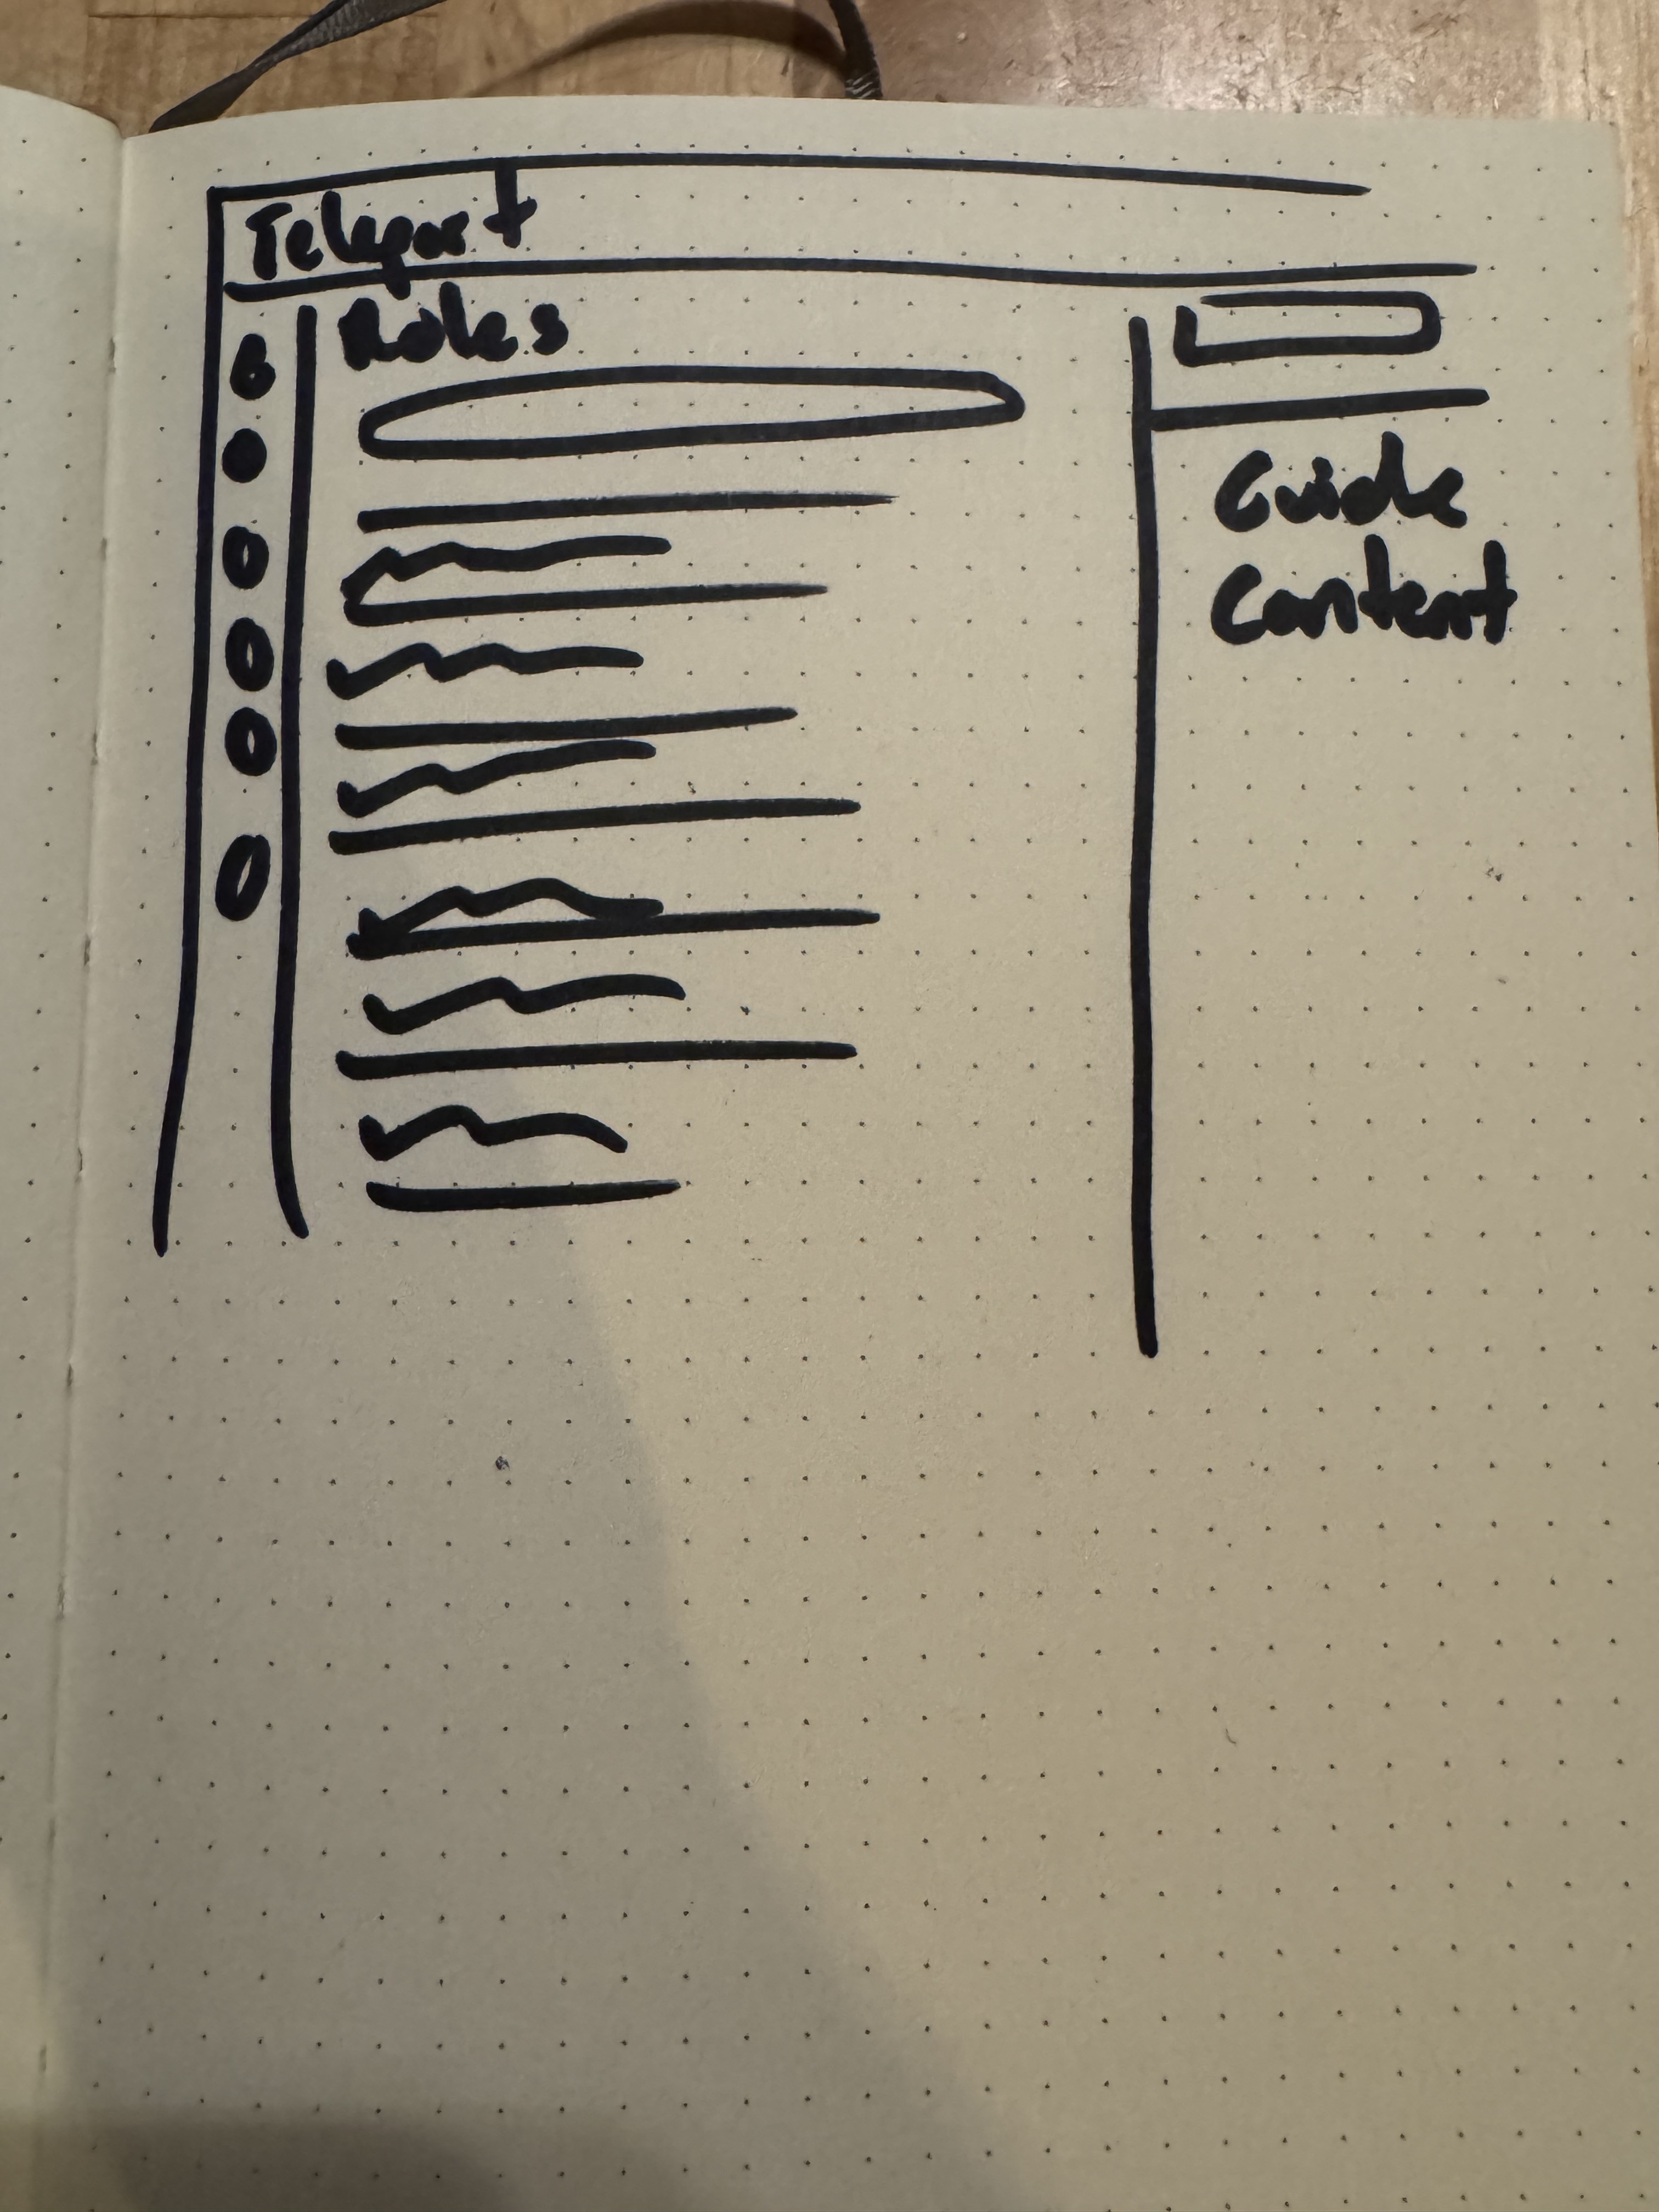 Teleport
Roles
Guide
Content